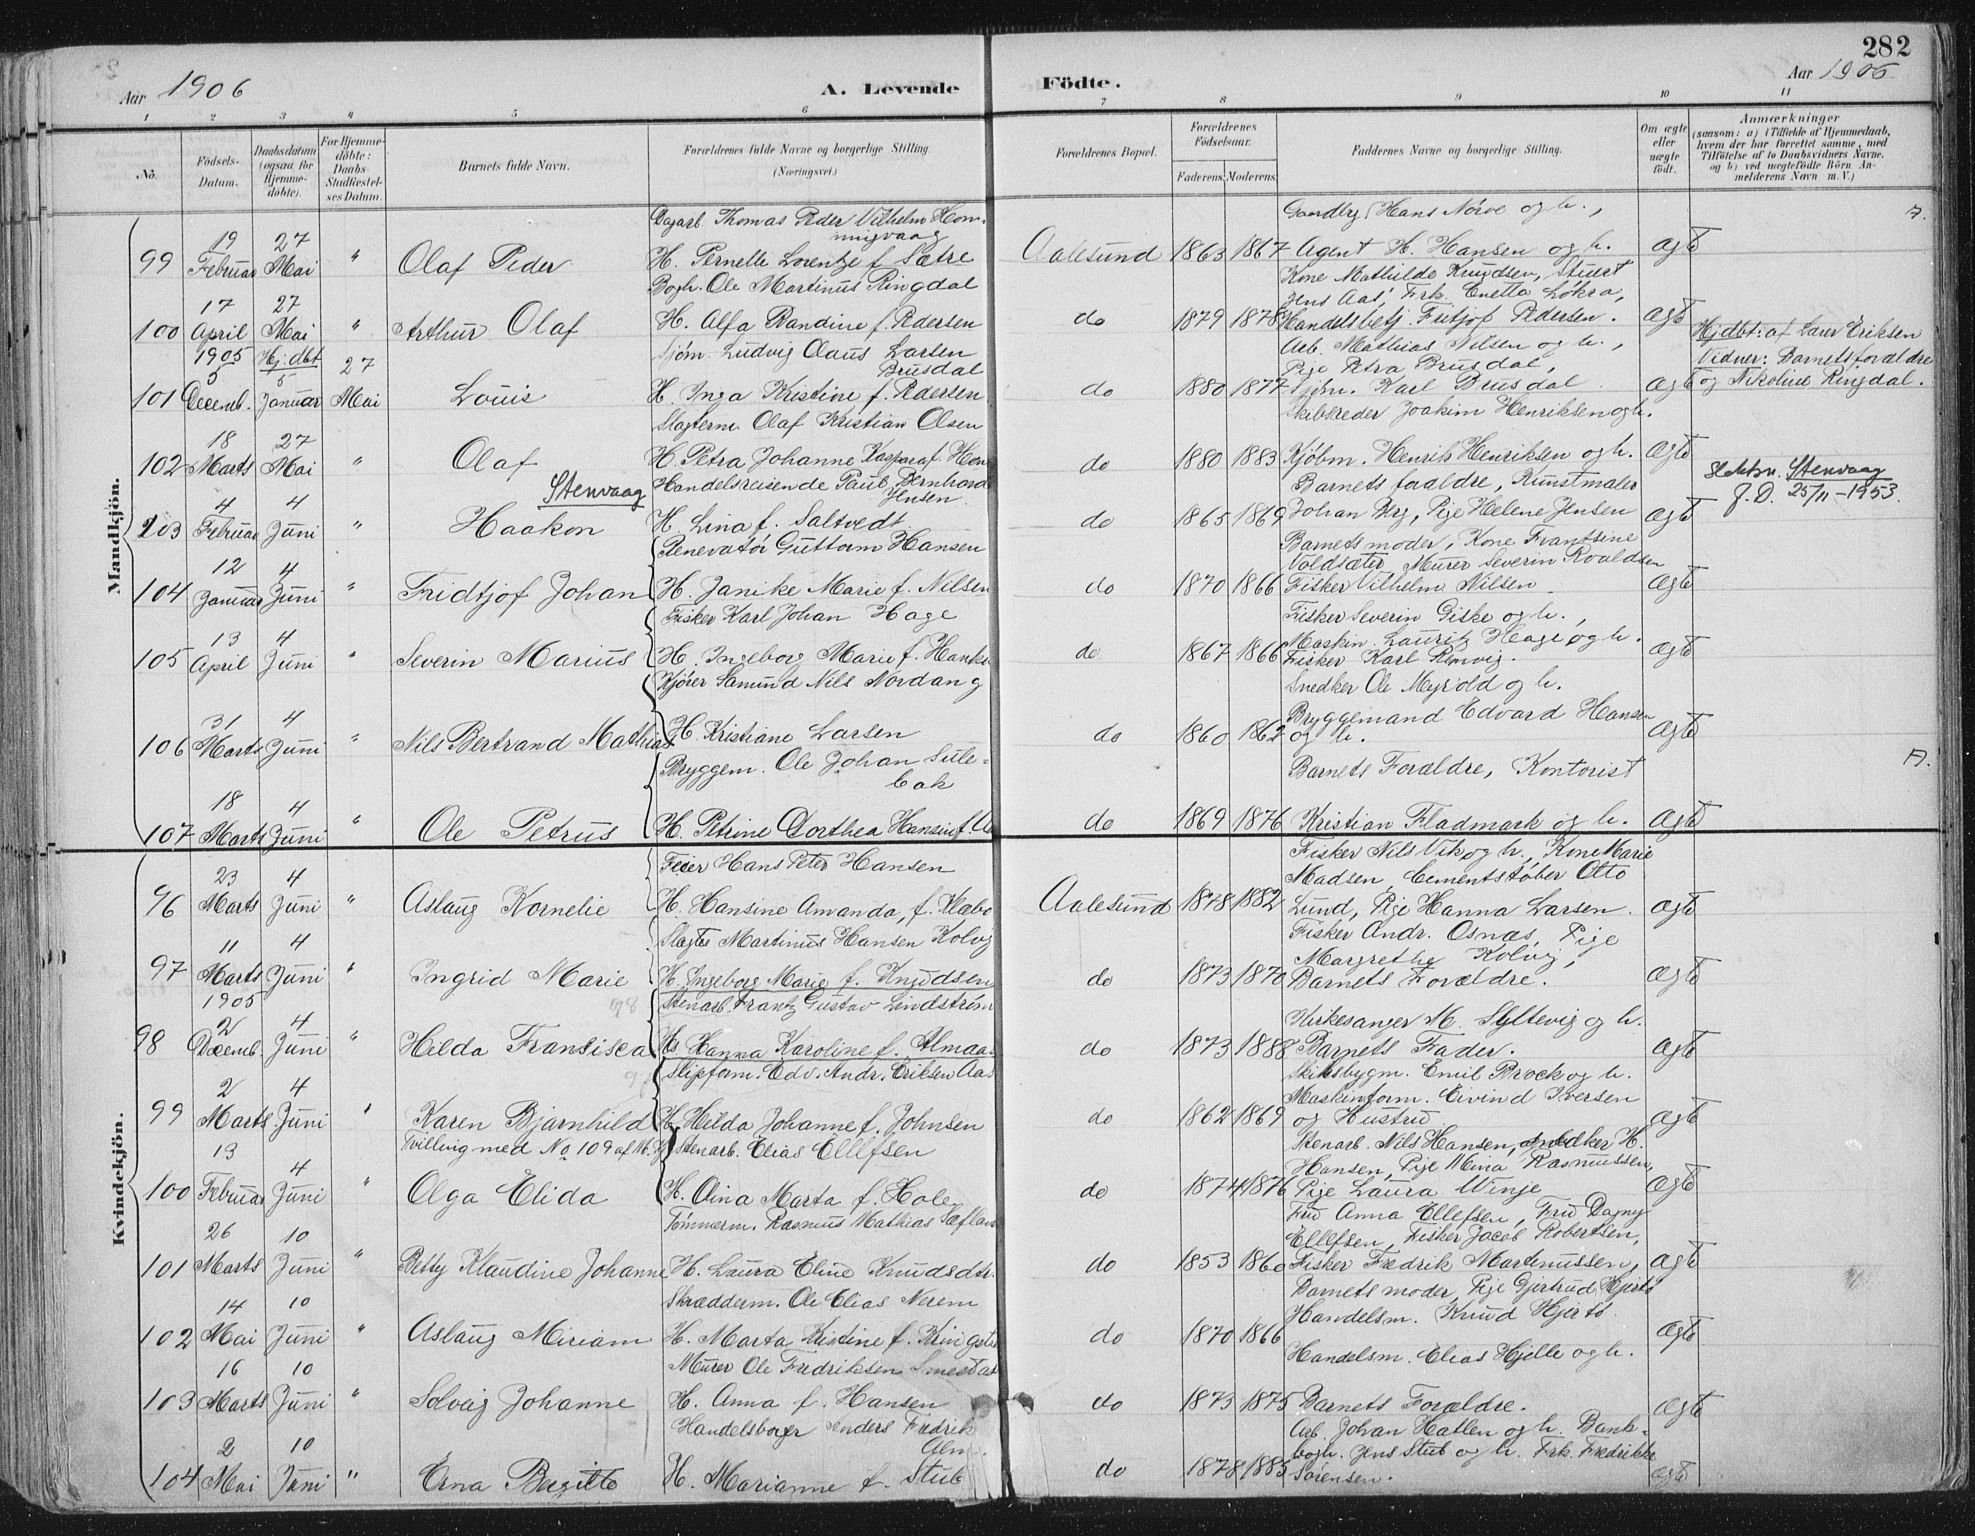 282
Aar 1906 A. Levende Födte. Aar 1906
1 2 3 4 5 6 7 8 9 10 11
No. Födsels-Datum. Daabsdatum (ogsaa for Hjemmedöbte). For Hjemmedöbte: Daabs-Stadfæstelses Datum. Barnets fulde Navn. Forældrenes fulde Navne og borgerlige Stilling. (Næringsvei.) Forældrenes Bopæl. Forældrenes Födselsaar. Faderens. Moderens. Faddernes Navne og borgerlige Stilling. Om ægte eller uægte födt. Anmærkninger
(saasom: a) i Tilfælde af Hjemmedaab, hvem der har forrettet samme, med Tilföielse af to Daabsvidners Navne, og b) ved uegtefödte Börn Anmelderens Navn m. V.)
Mandkjön.
Dagarb. Thomas Peder Vilhelm Hom-
mingvaag
Gaardbr. Hans Nörve og h.,
99 19 Februar 27 Mai " Olaf Peder H. Pernelle Lorentze f. Sætre Aalesund 1863 1867 Agent H. Hansen og h. ægte
Kone Mathilde Knudsen, Stuert
Bogh. Ole Martinus Ringdal
Jens Aas, Frk. Enetta Løkra,
100 17 April 27 Mai " Arthur Olaf H. Alfa Randine f. Pedersen do 1879 1878 Handelsbetj. Fritjof Pedersen. ægte
Sjøm. Ludvig Claus Larsen
Brusdal
Arb. Mathias Nilsen og h.,
Pige Petra Brusdal,
101 1905 5 Decemb. Hj:dbt 5 Januar 27 Mai Louis H. Inga Kristine f. Pedersen do 1880 1877 Sjøm. Karl Brusdal. ægte
Hj.dbt: af Laur Eriksen
Vidner: Barnets forældre
og Nikoline Ringdal.
Slagterm. Olaf Kristian Olsen
Skibsreder Joakim Henriksen og h.
102 18 Marts 27 Mai " Olaf H. Petra Johanne Kaspara f. Hen do 1880 1883 Kjøbm. Henrik Henriksen og h. ægte
Stenvaag
Handelsreisende Paul Bernhard
Jensen
Barnets forældre, Kunstmaler
103 4 Februar 4 Juni " Haakon H. Lina f. Saltvedt do 1865 1869 Johan Berg, Pige Helene Jensen ægte
Stenvaag
J. D. 25/11-1953.
Renevatör Guttorm Hansen
Barnets moder, Kone Frantsine
Voldsæter, Murer Severin Roaldsen
104 12 Januar 4 Juni " Fridtjof Johan H. Janike Marie f. Nilsen do 1870 1866 Fisker Vilhelm Nilsen. ægte
Fisker Karl Johan Hage
Fisker Severin Giske og h.,
Maskin. Lauritz Hage og h.
105 13 April 4 Juni " Severin Marius H. Ingeborg Marie f. Hanks. do 1867 1866 Fisker Karl Remvig. ægte
Kjører Samund Nils Nordang
Snedker Ole Myrvold og h.
Bryggemand Edvard Hansen
106 31 Marts 4 Juni " Nils Bertrand Mathias H. Kristiane Larsen do 1860 1862 og h. ægte
Bryggem. Ole Johan Sule-
bak
Barnets Forældre, Kontorist
107 18 Marts 4 Juni " Ole Petrus H. Petrine Dorthea Hansine f. do 1869 1876 Kristian Fladmark og h. ægte
Kvindekjön.
Feier Hans Peter Hansen
Fisker Nils Vik og h., Kone Marie
Madsen, Cementstøber Otto
96 23 Marts 4 Juni " Aslaug Kornelie H. Hansine Amanda, f. Klabo Aalesund 1878 1882 Lund, Pige Hanna Larsen. ægte
Slagter Martinus Hansen Kolvig
Fisker Andr. Osnæs, Pige
Margrethe Kolvig,
97 11 Marts 4 Juni " Ingrid Marie H. Ingeborg Marie f. Knudsen do 1873 1870 Barnets Forældre. ægte
Stenarb. Frantz Gustav Lindström
Kirkesanger M. Syltevig og h.
98 1905 2 Decemb. 4 Juni " Hilda Fransisca H. Hanna Karoline f. Almaas do 1873 1888 Barnets Fader. ægte
Slipform. Edv. Andr. Eriksen Aas
Skibsbygm. Emil Brock og h.
Maskinform. Eivind Iversen
99 2 Marts 4 Juni " Karen Bjarnhild H. Hilda Johanne f. Johnsen do 1862 1869 og Hustru ægte
Tvilling med No 109 af M. Kj.
Stenarb. Elias Ellefsen
Stenarb. Nils Hansen, Snedker H.
Hansen, Pige Mina Rasmussen,
100 13 Februar 4 Juni " Olga Elida H. Oina Marta f. Hole do 1874 1876 Pige Laura Winje ægte
Tömmerm. Rasmus Mathias Sæfland
Fru Anna Ellefsen, Fru Dagny
Ellefsen, Fisker Jacob Robertsen,
101 26 Marts 10 Juni " Betty Klaudine Johanne H. Laura Eline Knudsdtr. do 1853 1860 Fisker Fredrik Martinussen, ægte
Skrædderm. Ole Elias Nerem
Barnets moder, Pige Gjertrud Hjertø
Handelsm. Knud Hjertø
102 14 Mai 10 Juni " Aslaug Miriam H. Marta Kristine f. do 1870 1866 ægte
Murer Ole Fredriksen
Handelsm. Elias Hjelle og h.
103 16 Marts 10 Juni " Solveig Johanne H. Anna f. Hansen do 1873 1875 Barnets Forældre. ægte
Handelsborger Anders Fredrik
Alm.
Arb. Johan Hatlen og h. Bank-
bogh. Jens Stub og h. Frk. Fredrikke
104 2 Mai 10 Juni " Erna Birgitte H. Marianne f. Stub do 1878 1885 Sørensen. ægte